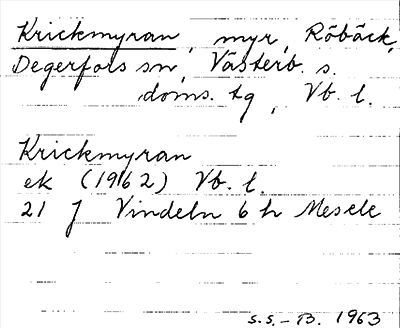 Krickmyran, myr, Röbäck,
Degerfors sn, Västerb. s.
doms. tg, Vb. l.
Krickmyran
ek (1962) Vb. l.
21 J Vindeln 6 h Mesele
S.S.-B. 1963